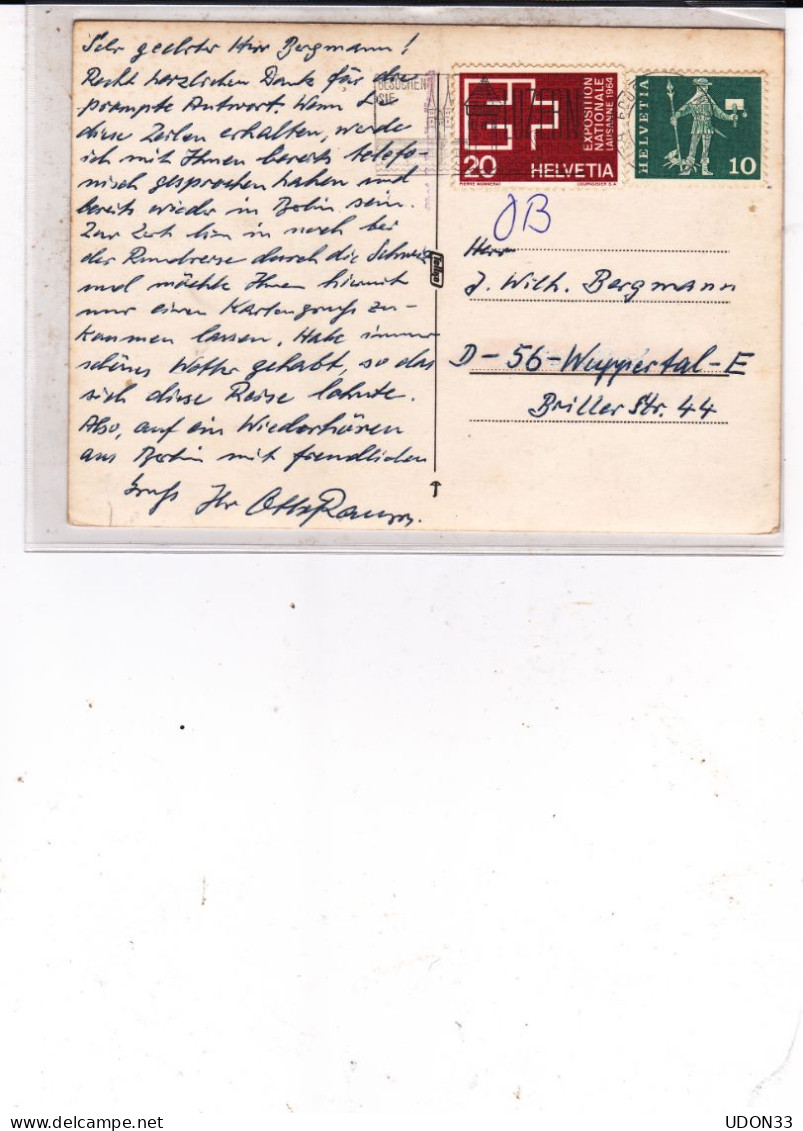 Sehr geehrter Herr Bergmann!
Recht herzlichen Dank für die
prompte Antwort. Wenn Sie
diese Zeilen erhalten, werde
ich mit Ihnen bereits telefo-
nisch gesprochen haben und
bereits wieder in Berlin sein.
Zur Zeit bin in noch bei
der Rundreise durch die Schweiz
und möchte Ihnen hiermit
nur einen Kartengruss zu-
kommen lassen. Habe immer
schönes Wetter gehabt, so das
sich diese Reise lohnte.
Also, auf ein Wiederhören
aus Berlin mit freundlichen
Gruß Ihr Otto
BESUCHEN
SIE
LUZERN
20
HELVETIA
EXPOSITION
NATIONALE
LAUSANNE 1964
PIERRE MONNERAT
COURVOISIER S.A.
HELVETIA
10
JB
Herr
J. Wilh. Bergmann
D-56-Wuppertal-E
Briller Str. 44
UDON33